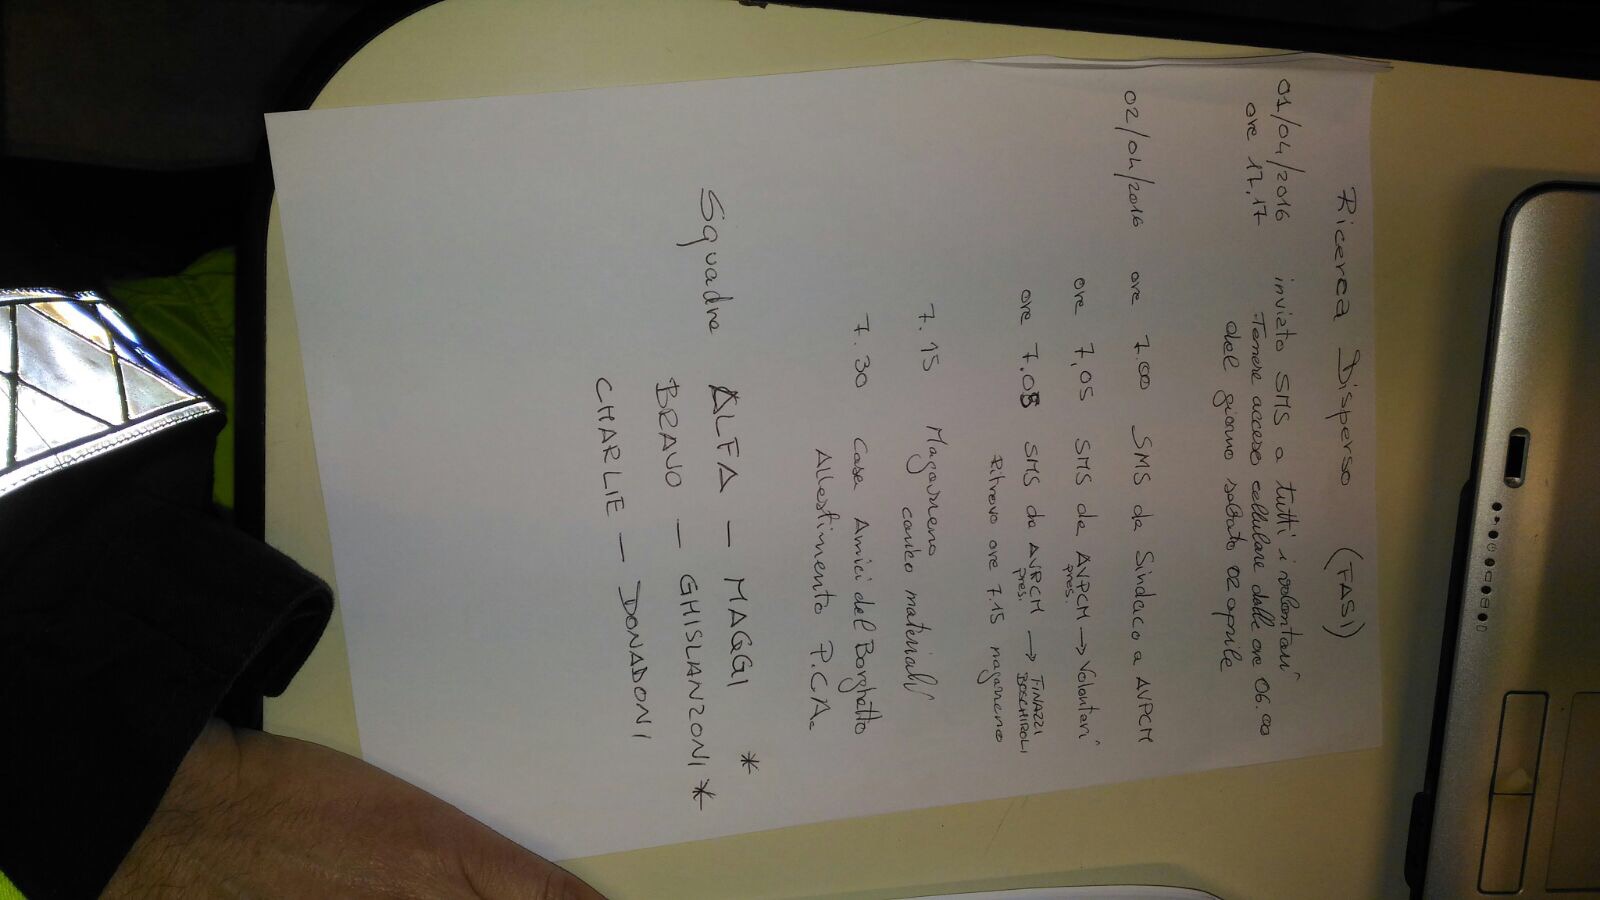 Ricerca Disperso (FASI)
01/04/2016 inviato SMS a tutti i volontari
ore 17.17 Tenere acceso cellulare dalle ore 06.00
del giorno sabato 02 aprile
02/04/2016 ore 7.00 SMS da Sindaco a AVPCM
ore 7,05 SMS da AVPCM → Volontari
pres.
ore 7,08 SMS da AVPCM → FINAZZI
pres. BOSCHIROLI
Ritrovo ore 7.15 magazzeno
7.15 Magazzeno
carico materiali
7.30 Casa Amici del Borghetto
Allestimento P.C.A.
Squadre ALFA - MAGGI *
BRAVO - GHISLANZONI *
CHARLIE - DONADONI